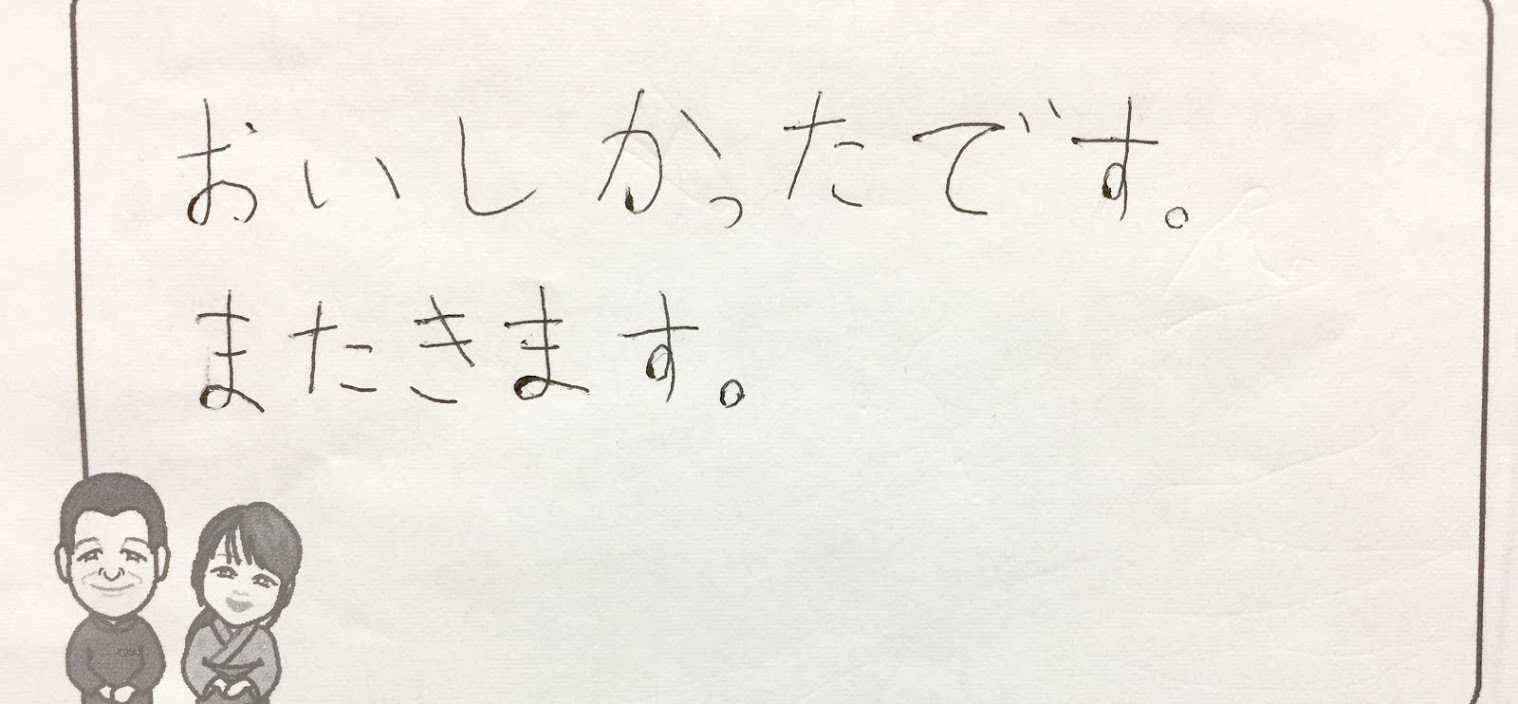 おいしかったです。
またきます。